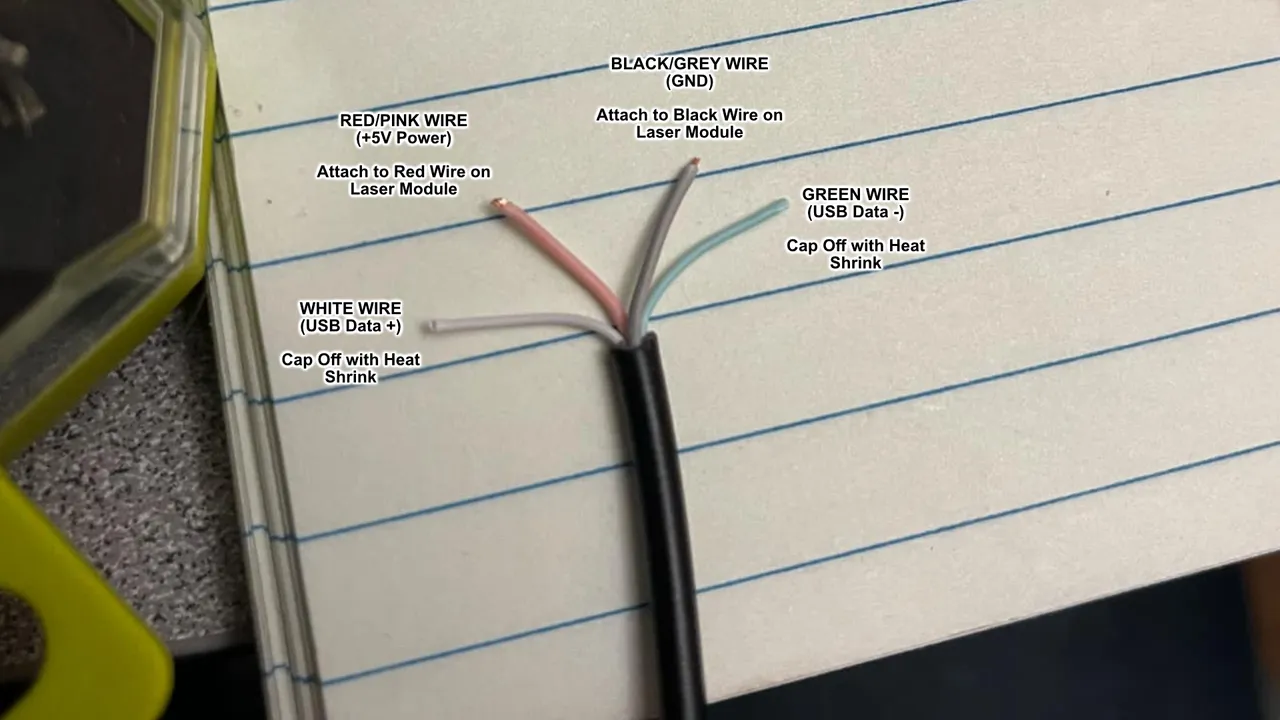 BLACK/GREY WIRE
(GND)
Attach to Black Wire on
Laser Module
RED/PINK WIRE
(+5V Power)
Attach to Red Wire on
Laser Module
GREEN WIRE
(USB Data -)
Cap Off with Heat
Shrink
WHITE WIRE
(USB Data +)
Cap Off with Heat
Shrink